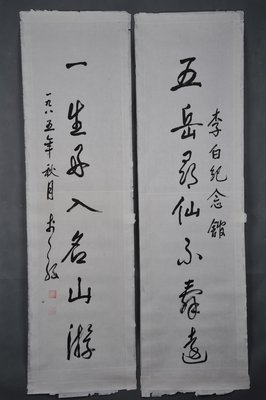 五岳尋仙不辭遠
李白纪念馆
一生好入名山游
一九八五年秋月